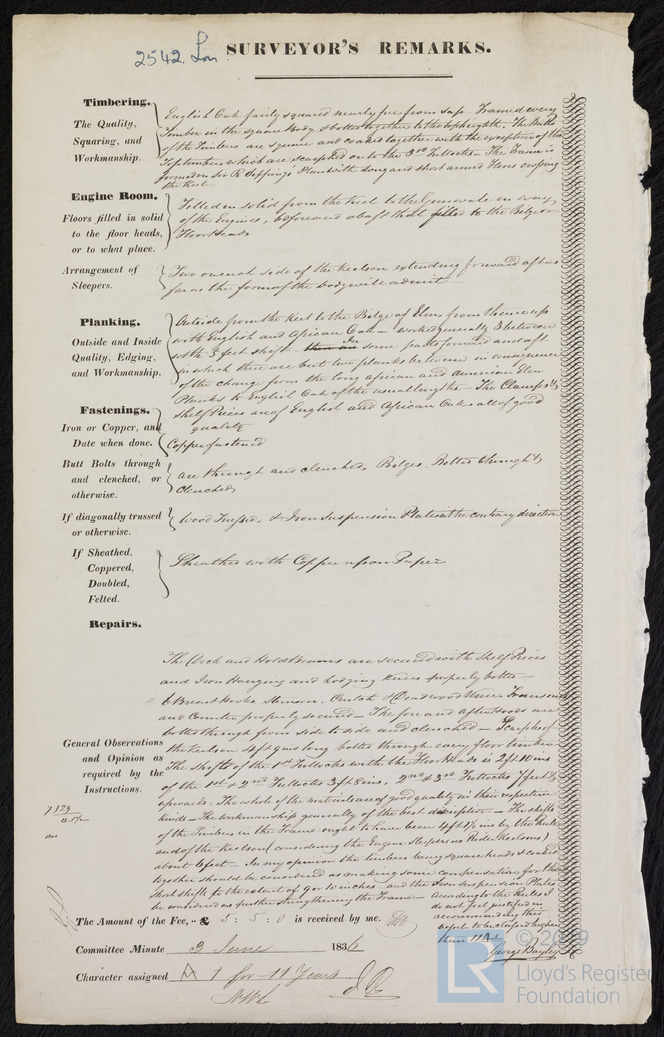 2542 Lon SURVEYOR'S REMARKS.
Timbering.
The Quality,
Squaring, and
Workmanship.
English Oak fairly squared nearly free from sap. Framed every
Timber in the square body & bolted together to the topheight. The Butts
of the Timbers are square and coaked together with the exception of the
Toptimbers which are scarphed on to the 3rd Futtocks. The Frame is
formed on Sir R Seppings' Plan with long and short armed floors crossing
the keel
Engine Room.
Floors filled in solid
to the floor heads,
or to what place.
Filled in solid from the keel to the Gunwale in way
of the Engines, before and abaft that filled to the Bilge or
Floorheads
Arrangement of
Sleepers.
Two on each side of the keelson extending forward aft as
far as the form of the body will admit
Planking.
Outside and Inside
Quality, Edging,
and Workmanship.
Outside from the keel to the Bilge of Elm from thence up
with English and African Oak – worked generally 3 between
with 5 feet shift in some parts forward and aft
in which there are but two planks between in consequence
of the change from the long African and American Elm
Planks to English Oak of the usual lengths – The Clamps &
shelf Pieces are of English and African Oak, all of good
quality
Fastenings.
Iron or Copper, and
Date when done.
Copper fastened
Butt Bolts through
and clenched, or
otherwise.
are through and clenched, Bilges, Bolted through &
clenched
If diagonally trussed
or otherwise.
Wood Trussed, & Iron suspension Plates in the contrary direction
If Sheathed,
Coppered,
Doubled,
Felted.
Sheathed with Copper upon Paper
Repairs.
General Observations
and Opinion as
required by the
Instructions.
The Deck and Hold Beams are secured with Shelf Pieces
and Iron Hanging and lodging knees properly bolted –
6 Breast Hooks Stemson, Crutch & Deadwood knees, Transoms
and Counter properly secured – The fore and After Hoods are
bolted through from side to side and clenched – Scarphs of
the keelson 4 ft 9 ins long bolted through every floor timber
The shifts of the 1st Futtocks with the Floor Heads is 2 ft 10 ins
of the 1st & 2nd Futtocks 3 ft 8 ins, 2nd & 3rd Futtocks 7 feet &
upwards. The whole of the materials are of good quality in their respective
kinds – The workmanship generally of the best description – The shifts
of the Timbers in the Frame ought to have been 4 ft 1½ ins by the Rule
and of the keelson (considering the Engine Sleepers as Rider keelsons)
about 6 feet – In my opinion the timbers being square headed & coaked
together should be considered as making some compensation for the
short shifts to the extent of 9 or 10 inches and the Iron Suspension Plates
be considered as further strengthening the Frame – According to the Rules I
do not feel justified in
recommending this
vessel to be classed higher
than 11 A1
George Bayley
The Amount of the Fee, £ 5 : 5 : 0 is received by me.
Committee Minute 3 June 1836
Character assigned A 1 for 11 Years
© 2019
LR
Lloyd's Register
Foundation